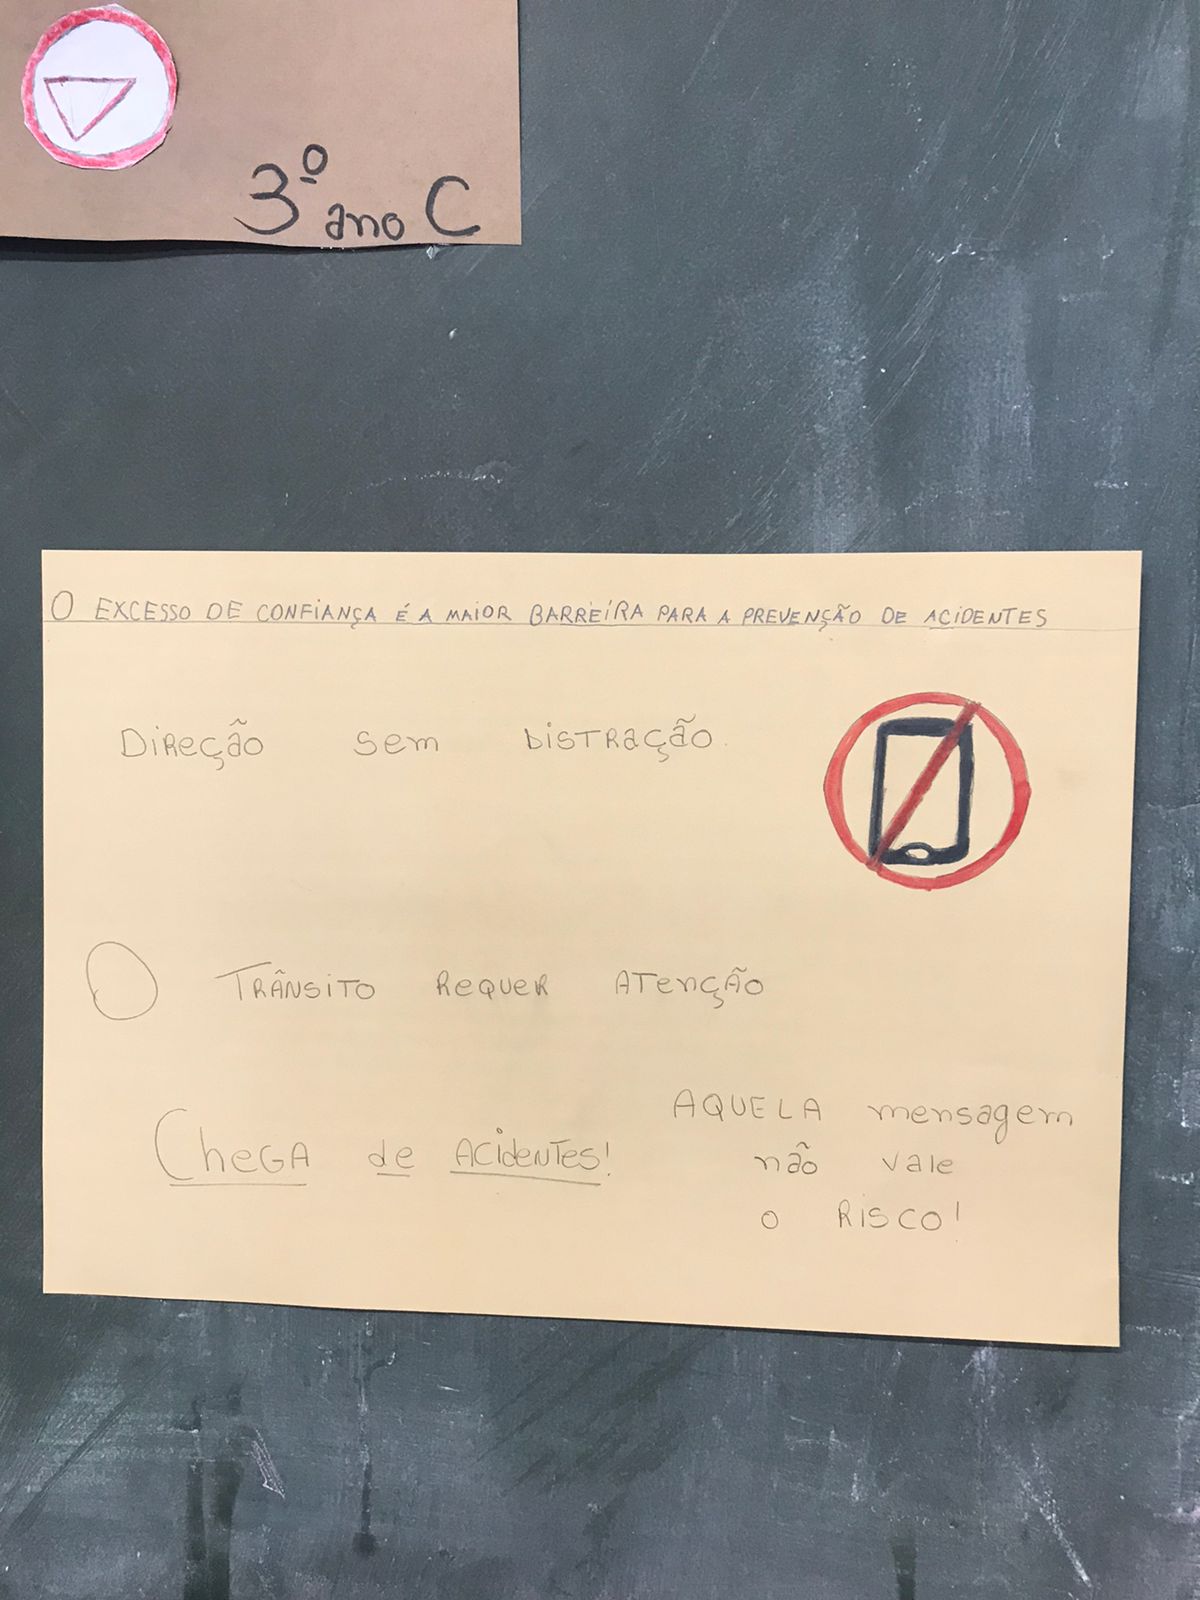 3º ano C
O EXCESSO DE CONFIANÇA É A MAIOR BARREIRA PARA A PREVENÇÃO DE ACIDENTES
Direção sem Distração.
O Trânsito Requer Atenção
Chega de Acidentes!
AQUELA mensagem
não vale
o RISCO!